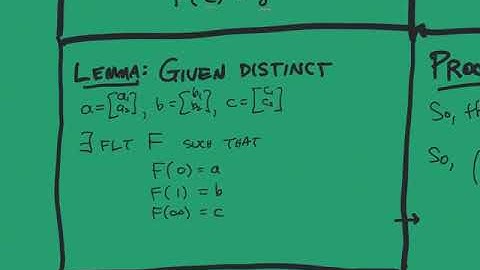 LEMMA: GIVEN DISTINCT
a=[a₁ a₂], b=[b₁ b₂], c=[c₁ c₂]
∃ FLT F SUCH THAT
F(0)=a
F(1)=b
F(∞)=c
PROO
So, th
So, (